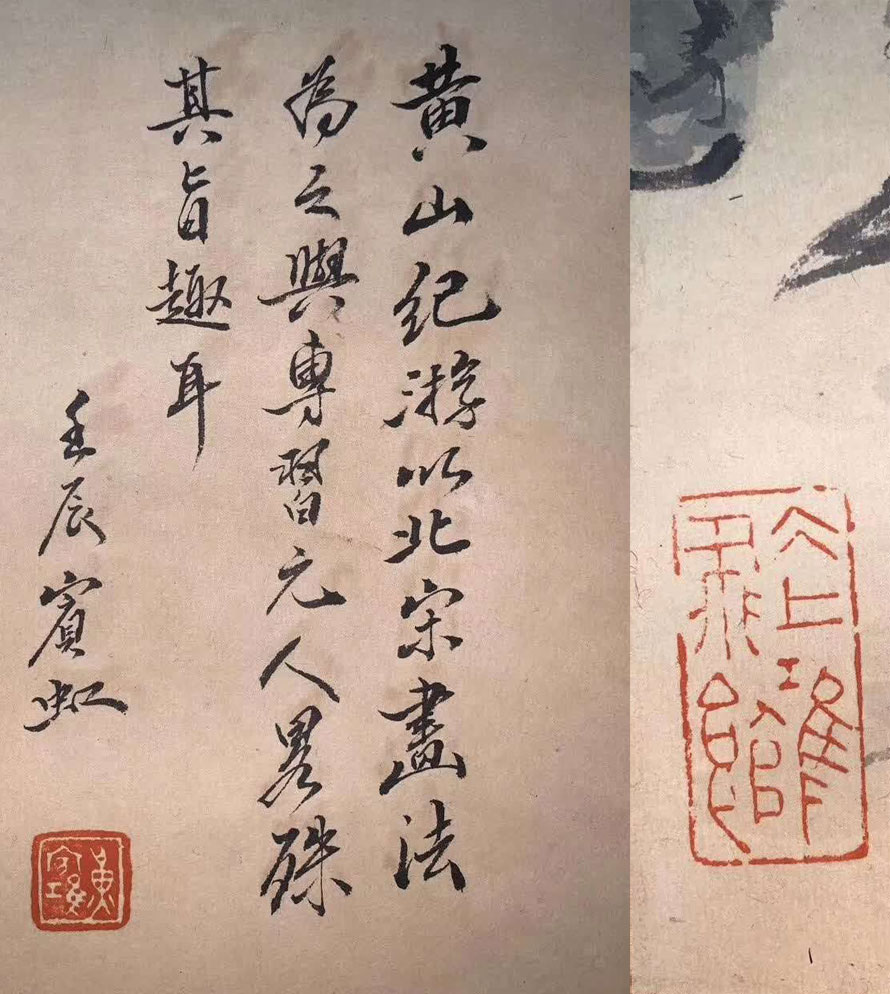 黄山纪游以北宋畫法
為之與專習元人畧殊
其旨趣耳
壬辰賓虹
黄賓虹